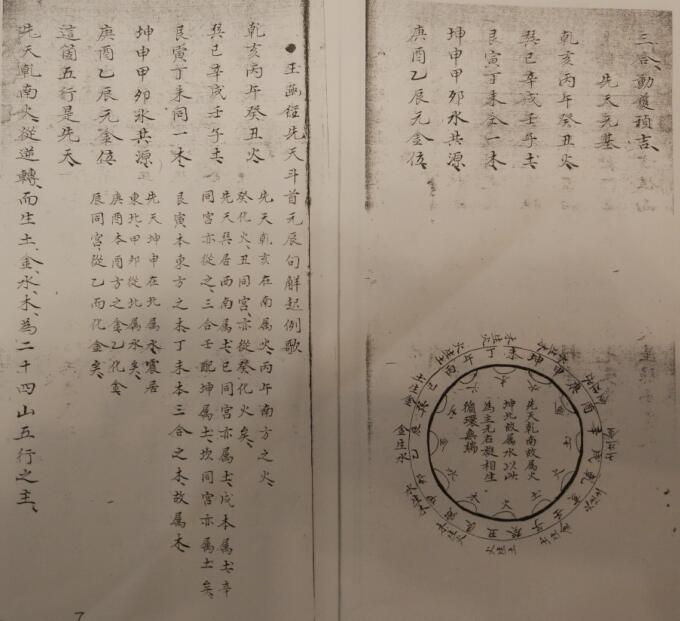 三合、動覆預吉、
先天元基
乾亥丙午癸丑火、
巽巳辛戌壬子土、
艮寅丁未全一木、
坤申甲卯水共源、
庚酉乙辰元金位、
先天乾南故属火
坤北故属水以此
為主元右旋相生
循環無端
金生水
玉函經先天斗首元辰句解起例歌
乾亥丙午癸丑火、
先天乾亥在南属火、丙午南方之火、
癸化火、丑同宮、亦從癸化火矣、
巽巳辛戌壬子土、
先天巽居西南属土、巳同宮亦属土、戌本属土、辛
同宮亦從之、三合壬配坤属土、坎同宮亦属土矣、
艮寅丁未同一木、
艮寅、本東方之木、丁未本三合之木、故属木、
坤申甲卯水共源、
先天坤申在北属水、震居
東北、甲卯從北属水矣、
庚酉乙辰元金位、
庚酉本酉方之金、乙化金、
辰同宮、從乙而化金矣、
這箇五行是先天、
先天乾南火、從逆轉、而生土、金、水、木、為二十四山五行之主、
7